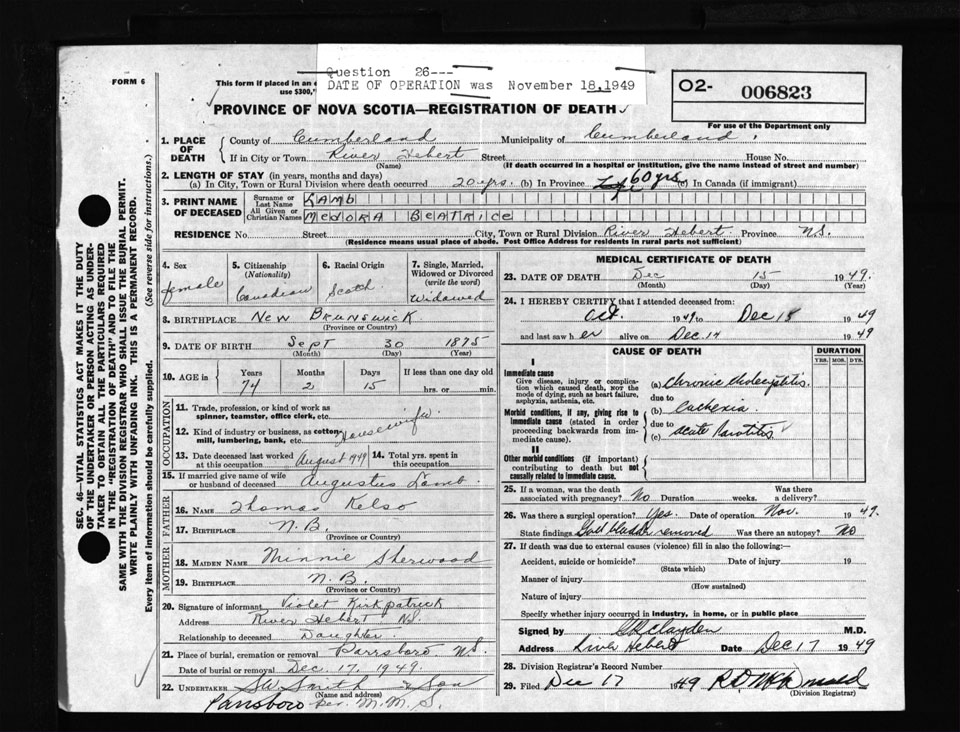 Question 26---
DATE OF OPERATION was November 18,1949
FORM 6
This form if placed in an e
use $300,"
PROVINCE OF NOVA SCOTIA—REGISTRATION OF DEATH
02- 006823
For use of the Department only
1. PLACE OF DEATH
County of Cumberland Municipality of Cumberland
If in City or Town River Hebert Street House No.
(Name) (If death occurred in a hospital or institution, give the name instead of street and number)
2. LENGTH OF STAY (in years, months and days)
(a) In City, Town or Rural Division where death occurred 20 yrs. (b) In Province 60 yrs (c) In Canada (if immigrant)
3. PRINT NAME OF DECEASED
Surname or Last Name LAMB
All Given or Christian Names MEDORA BEATRICE
RESIDENCE No. Street City, Town or Rural Division River Hebert Province N.S.
(Residence means usual place of abode. Post Office Address for residents in rural parts not sufficient)
4. Sex female
5. Citizenship (Nationality) Canadian
6. Racial Origin Scotch
7. Single, Married, Widowed or Divorced (write the word) Widowed
8. BIRTHPLACE New Brunswick
(Province or Country)
9. DATE OF BIRTH Sept 30 1875
(Month) (Day) (Year)
10. AGE in Years Months Days If less than one day old
74 2 15 hrs. or min.
OCCUPATION
11. Trade, profession, or kind of work as spinner, teamster, office clerk, etc.
12. Kind of industry or business, as cotton mill, lumbering, bank, etc. Housewife
13. Date deceased last worked at this occupation August 1949 14. Total yrs. spent in this occupation
15. If married give name of wife or husband of deceased Augustus Lamb
FATHER
16. NAME Thomas Kelso
17. BIRTHPLACE N.B.
(Province or Country)
MOTHER
18. MAIDEN NAME Minnie Sherwood
19. BIRTHPLACE N.B.
(Province or Country)
20. Signature of informant Violet Kirkpatrick
Address River Hebert N.S.
Relationship to deceased Daughter
21. Place of burial, cremation or removal Parrsboro N.S.
Date of burial or removal Dec. 17, 1949.
22. UNDERTAKER SW Smith & Son
(Name and address)
Parrsboro per. M.M.S.
MEDICAL CERTIFICATE OF DEATH
23. DATE OF DEATH Dec 15 1949.
(Month) (Day) (Year)
24. I HEREBY CERTIFY that I attended deceased from:
Oct. 1949 to Dec 15 1949
and last saw her alive on Dec 14 1949
CAUSE OF DEATH DURATION
YRS. MOS. DYS.
I
Immediate cause
Give disease, injury, or complication which caused death, NOT the mode of dying, such as heart failure, asphyxia, asthenia, etc.
(a) Chronic Cholecystitis.
due to
Morbid conditions, if any, giving rise to immediate cause (stated in order proceeding backwards from immediate cause).
(b) Cachexia.
due to
(c) Acute Parotitis
II
Other morbid conditions (if important) contributing to death but not causally related to immediate cause.
25. If a woman, was the death associated with pregnancy? No Duration weeks. Was there a delivery?
26. Was there a surgical operation? Yes. Date of operation Nov. 1949.
State findings Gall bladder removed Was there an autopsy? No
27. If death was due to external causes (violence) fill in also the following:—
Accident, suicide or homicide? Date of injury 19
(State which)
Manner of injury
(How sustained)
Nature of injury
Specify whether injury occurred in industry, in home, or in public place
Signed by Clayden M.D.
Address River Hebert Date Dec 17 1949
28. Division Registrar's Record Number
29. Filed Dec 17 1949 R.D. McDonald
(Division Registrar)
SEC. 46—VITAL STATISTICS ACT MAKES IT THE DUTY
OF THE UNDERTAKER OR PERSON ACTING AS UNDER-
TAKER TO OBTAIN ALL THE PARTICULARS REQUIRED
IN THE "REGISTRATION OF DEATH" AND TO FILE THE
SAME WITH THE DIVISION REGISTRAR WHO SHALL ISSUE THE BURIAL PERMIT.
WRITE PLAINLY WITH UNFADING INK. THIS IS A PERMANENT RECORD.
Every item of information should be carefully supplied. (See reverse side for instructions.)